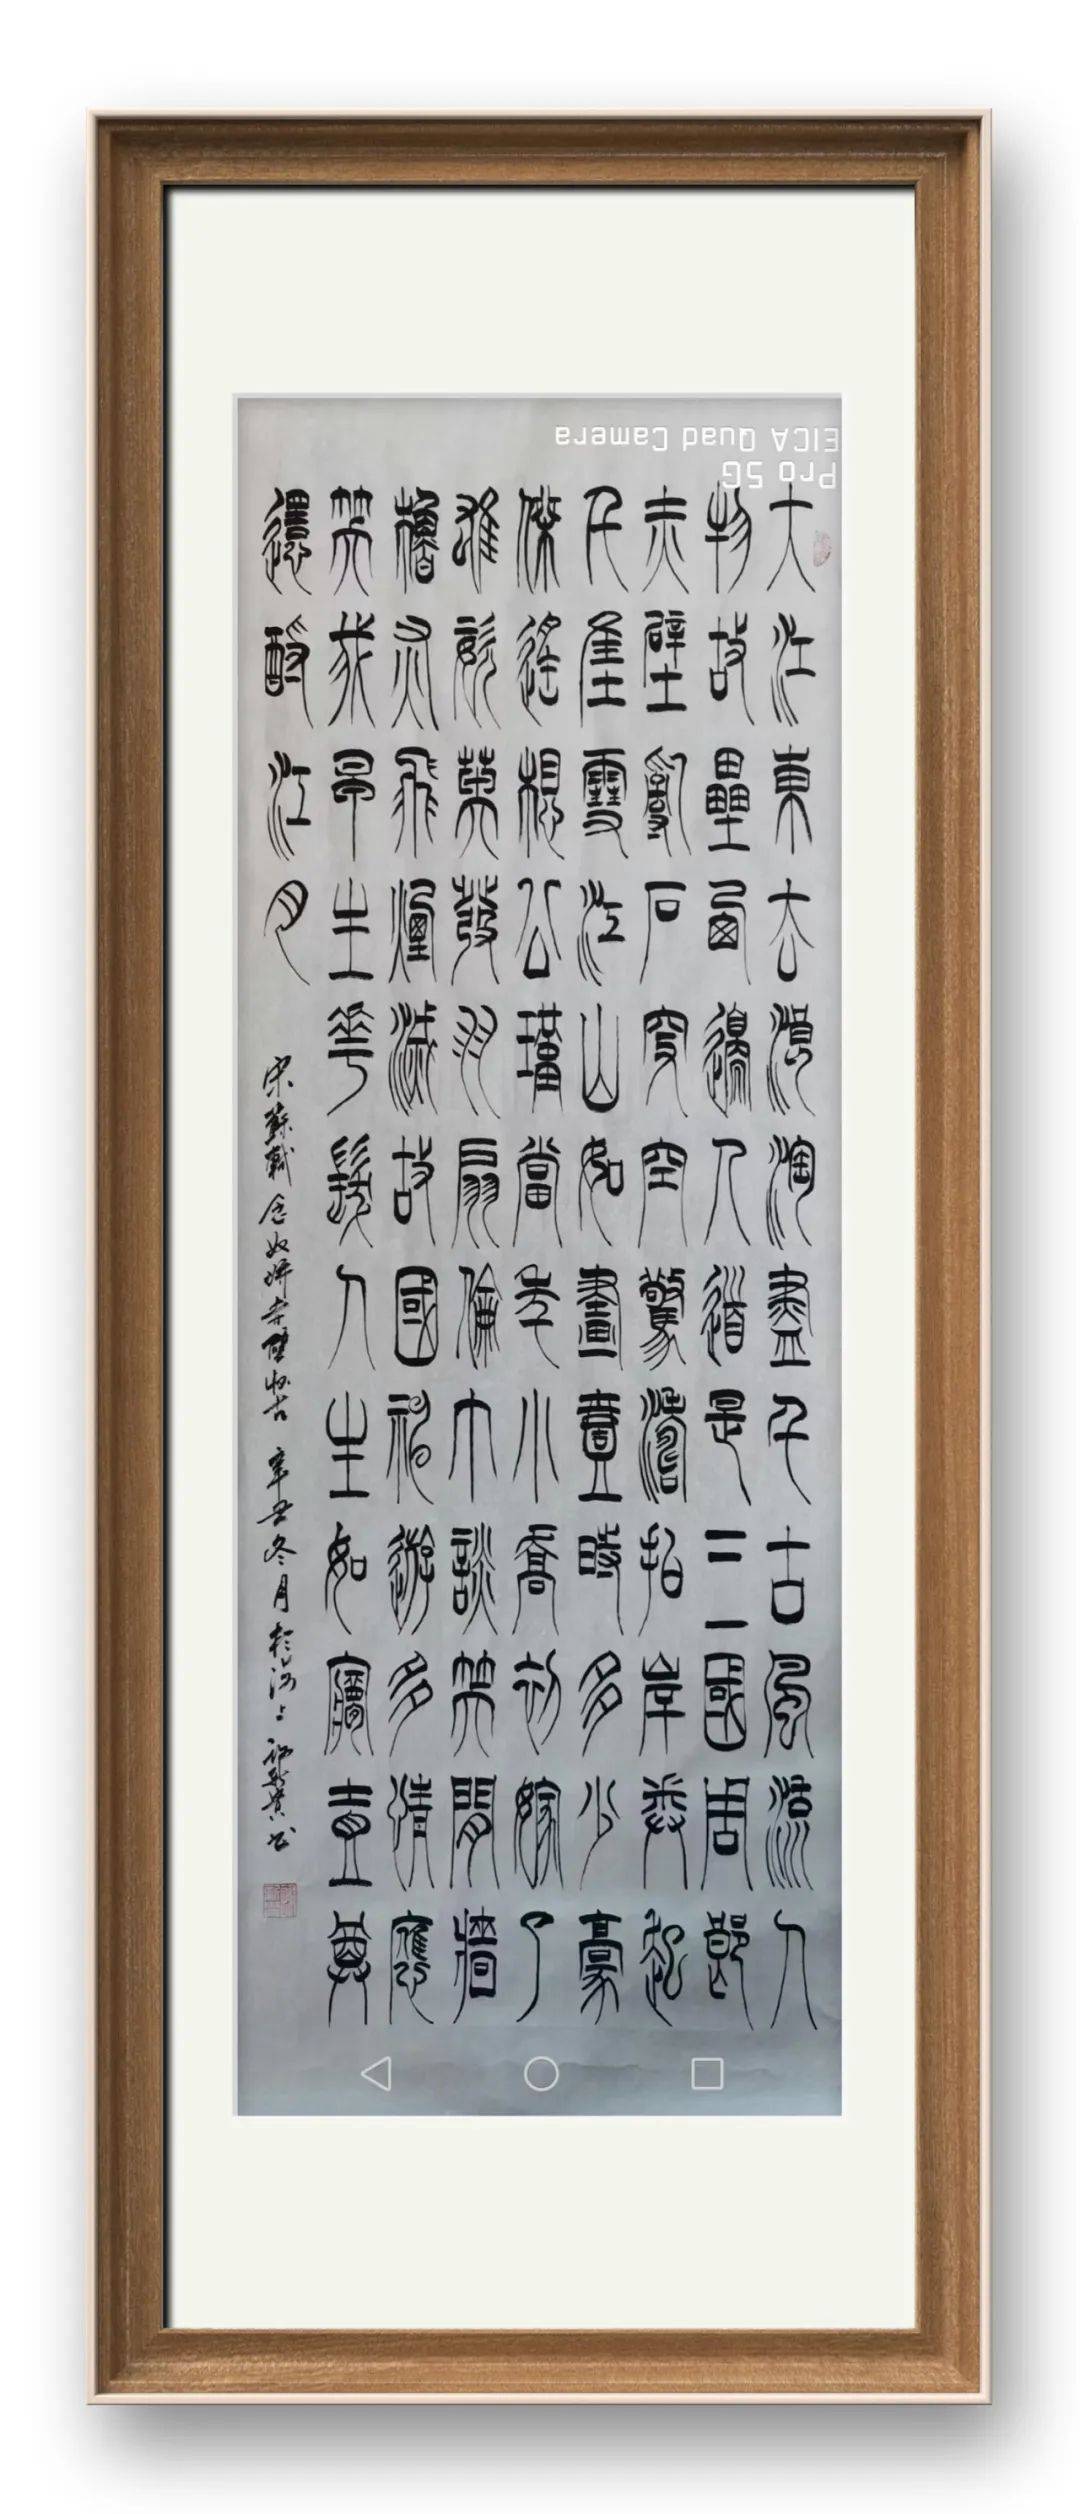 大江東去浪淘盡千古風流人
物故壘西邊人道是三國周郎
赤壁亂石穿空驚濤拍岸卷起
千堆雪江山如畫壹時多少豪
傑遙想公瑾當年小喬初嫁了
雄姿英發羽扇綸巾談笑間檣
櫓灰飛煙滅故國神遊多情應
笑我早生華髮人生如夢壹尊
還酹江月
宋蘇軾念奴嬌赤壁懷古 辛丑冬月於海上 貴書
Pro 5G
EICA Quad Camera